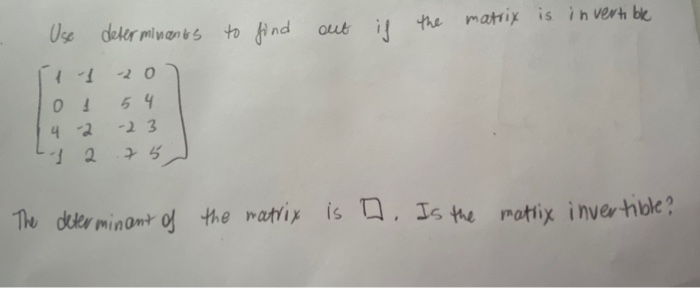 Use determinants to find out if the matrix is invertible
1 -1 -2 0
0 1 5 4
4 -2 -2 3
-1 2 7 5
The determinant of the matrix is □. Is the matrix invertible?